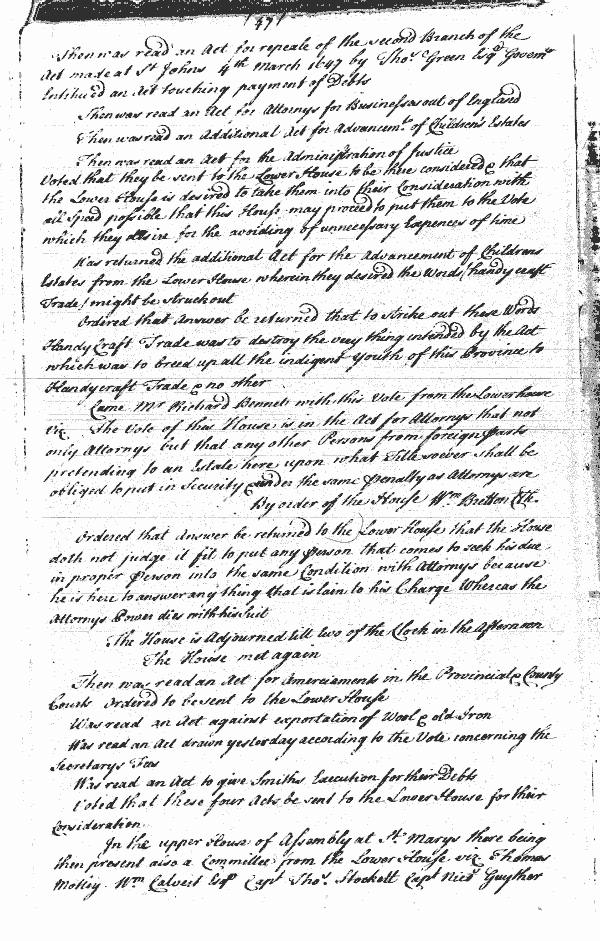 (47)
Then was read an Act for repeale of the second Branch of the
Act made at St Johns 4th March 1647 by Thos Green Esqr Governr
Entituled an Act touching payment of Debts
Then was read an Act for Attorys for Businesses out of England
Then was read an Additional Act for Advancemt of Children's Estates
Then was read an Act for the Administration of Justice
Voted that they be sent to the Lower House to be there considered & that
the Lower House is desired to take them into their Consideration with
all speed possible that this House may proceed to put them to the Vote
which they desire for the avoiding of unnecessary Expences of time
Was returned the additional Act for the Advancement of Childrens
Estates from the Lower House wherein they desired the Words (handy craft
Trade) might be struck out
Ordered that Answer be returned that to strike out these Words
Handy Craft Trade was to destroy the very thing intended by the Act
which was to breed up all the indigent Youth of this Province to
Handycraft Trade & no other
Came Mr Richard Bennett with this Vote from the Lower house
viz. The Vote of this House is in the Act for Attorys that not
only Attornys but that any other Persons from foreign parts
pretending to an Estate here upon what Title soever shall be
obliged to put in Security under the same penalty as Attornys are
By order of the House Wm Bretton Clk.
Ordered that Answer be returned to the Lower House that the House
doth not judge it fit to put any person that comes to seek his due
in proper person into the same Condition with Attornys because
he is here to answer any thing that is lain to his Charge Whereas the
Attornys Power dies with his Suit
The House is Adjourned till two of the Clock in the Afternoon
The House met again
Then was read an Act for Amerciaments in the Provincial & County
Courts Ordered to be sent to the Lower House
Was read an Act against exportation of Wool & old Iron
Was read an Act drawn yesterday according to the Vote concerning the
Secretarys Fees
Was read an Act to give Smiths Execution for their Debts
Voted that these four Acts be sent to the Lower House for their
Consideration
In the upper House of Assembly at St Marys there being
then present also a Committee from the Lower House viz. Thomas
Motley Wm Calvert Esqr Capt Thos Stockett Capt Nics Guyther